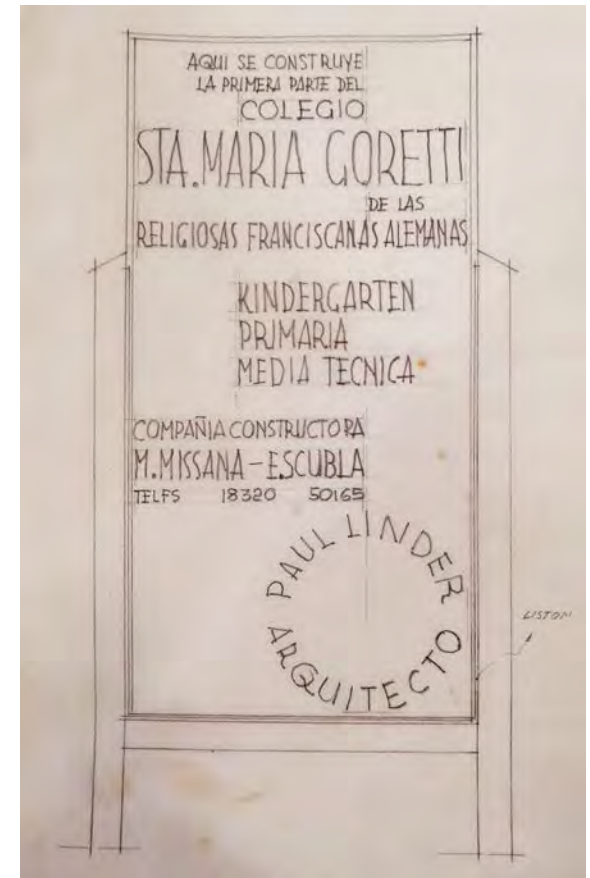 AQUI SE CONSTRUYE
LA PRIMERA PARTE DEL
COLEGIO
STA. MARIA GORETTI
DE LAS
RELIGIOSAS FRANCISCANAS ALEMANAS
KINDERGARTEN
PRIMARIA
MEDIA TECNICA
COMPAÑIA CONSTRUCTORA
M. MISSANA - ESCUBLA
TELFS 18320 50165
PAUL LINDER
ARQUITECTO
LISTON